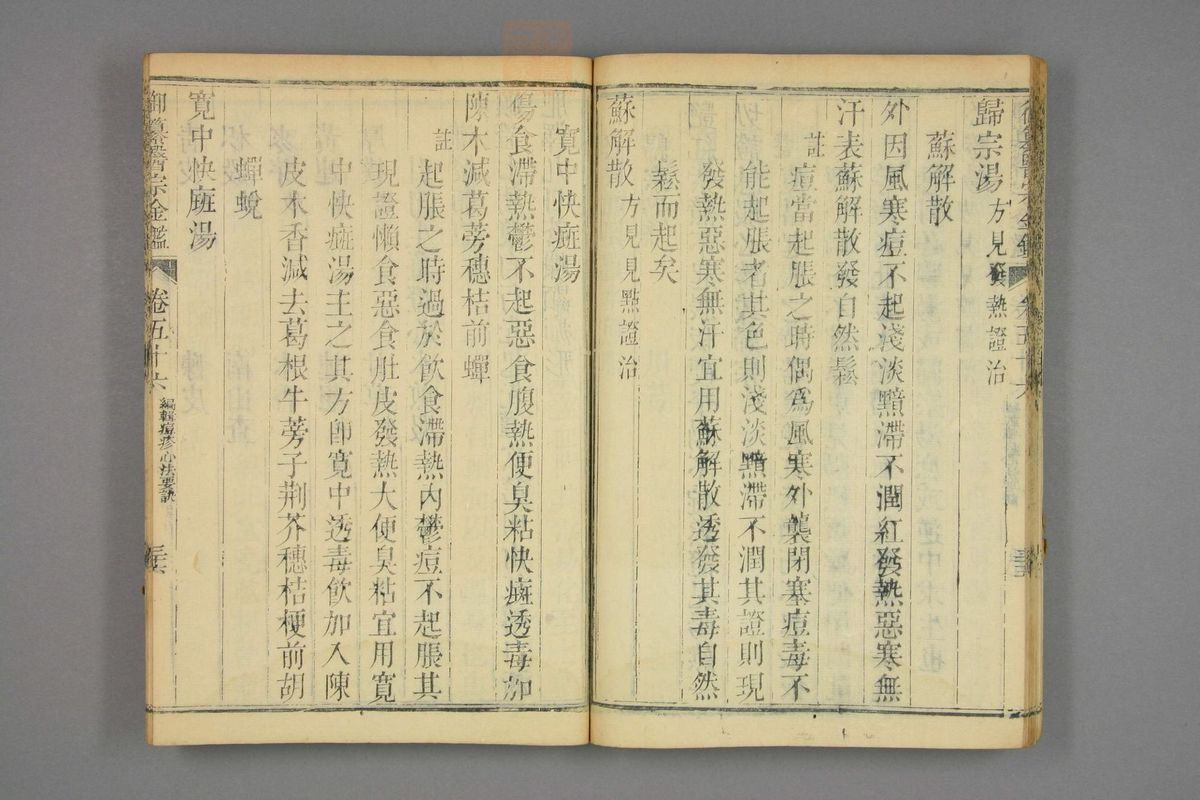 歸宗湯方見發熱證治
蘇解散
外因風寒痘不起淺淡黯滯不潤紅發熱惡寒無
汗表蘇解散發自然鬆
註痘當起脹之時偶為風寒外襲閉塞痘毒不
能起脹者其色則淺淡黯滯不潤其證則現
發熱惡寒無汗宜用蘇解散透發其毒自然
鬆而起矣
蘇解散方見見點證治
寬中快癍湯
傷食滯熱鬱不起惡食腹熱便臭粘快癍透毒加
陳木減葛蒡穗桔前蟬
註起脹之時過於飲食滯熱內鬱痘不起脹其
現證懶食惡食肚皮發熱大便臭粘宜用寬
中快癍湯主之其方卽寬中透毒飲加入陳
皮木香減去葛根牛蒡子荆芥穗桔梗前胡
蟬蛻
寬中快癍湯
御纂醫宗金鑑 卷五十六 編輯痘疹心法要訣